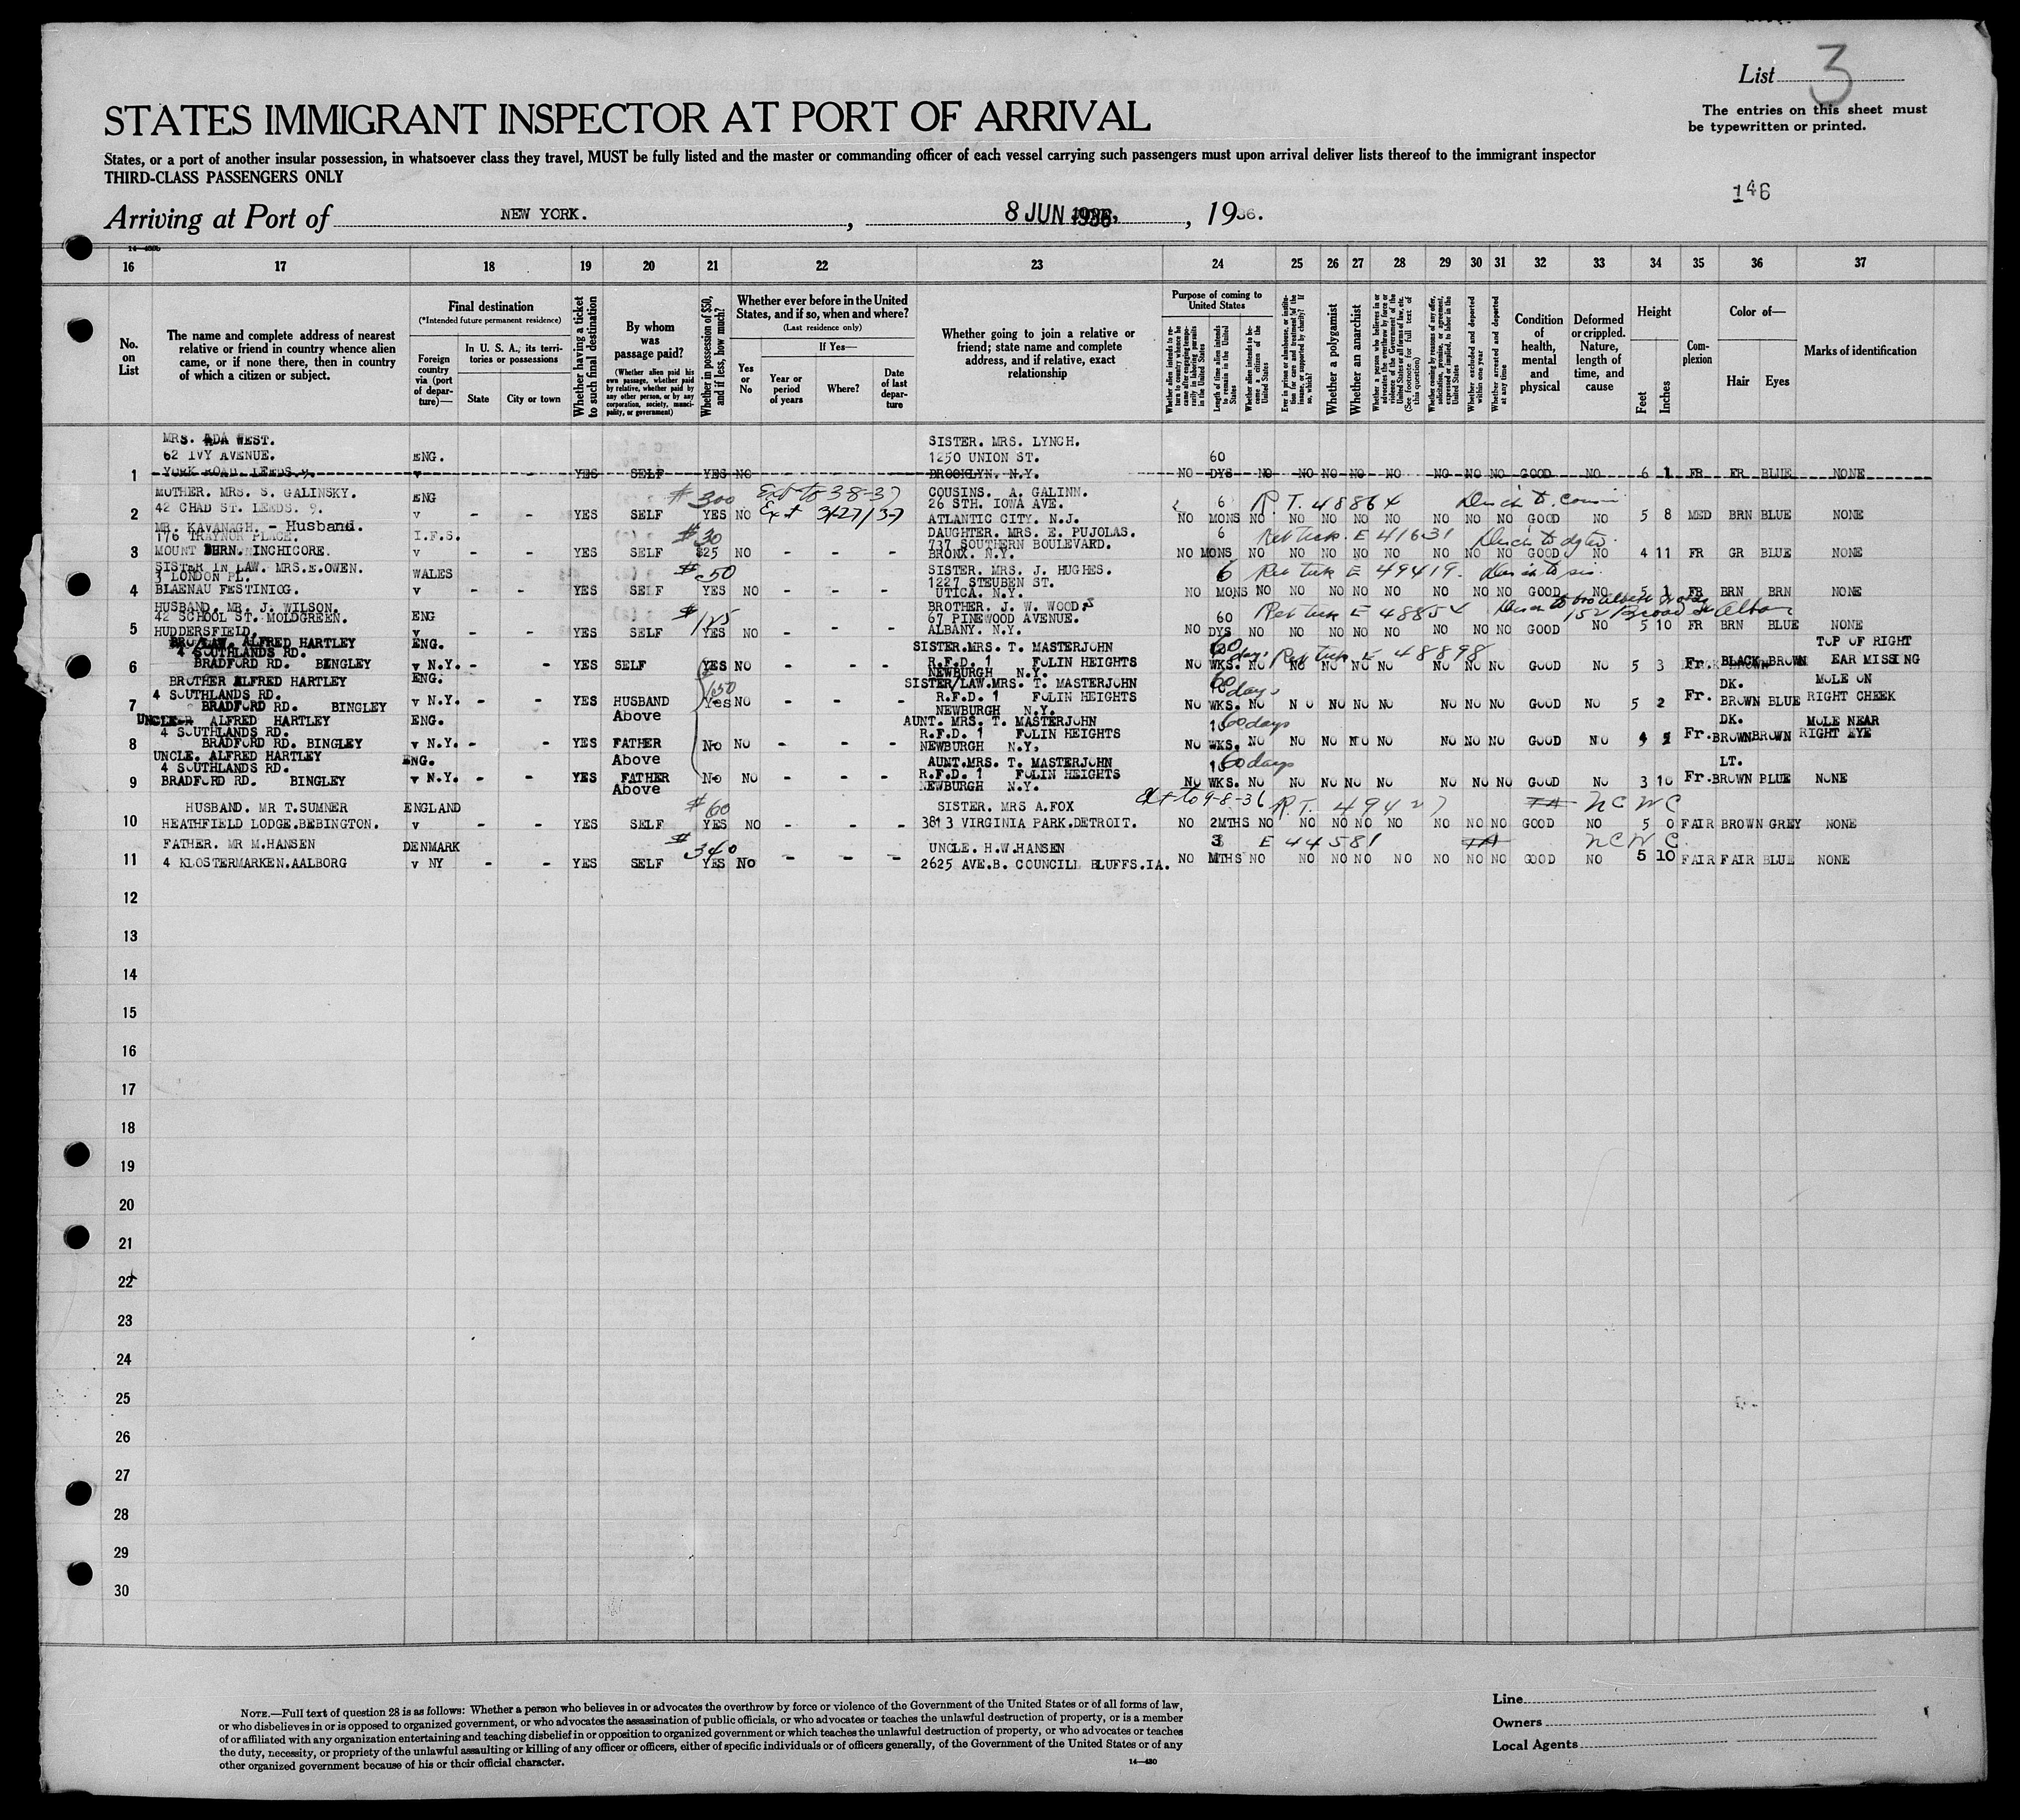 List 3
STATES IMMIGRANT INSPECTOR AT PORT OF ARRIVAL
The entries on this sheet must
be typewritten or printed.
States, or a port of another insular possession, in whatsoever class they travel, MUST be fully listed and the master or commanding officer of each vessel carrying such passengers must upon arrival deliver lists thereof to the immigrant inspector
THIRD-CLASS PASSENGERS ONLY
146
Arriving at Port of NEW YORK. , 8 JUN 1936 , 1936.
16 17 18 19 20 21 22 23 24 25 26 27 28 29 30 31 32 33 34 35 36 37
No. on List
The name and complete address of nearest relative or friend in country whence alien came, or if none there, then in country of which a citizen or subject.
Final destination
(*Intended future permanent residence)
Foreign country via (port of departure)—
In U. S. A., its territories or possessions
State
City or town
Whether having a ticket to such final destination
By whom was passage paid?
(Whether alien paid his own passage, whether paid by relative, whether paid by any other person, or by any corporation, society, municipality, or government)
Whether in possession of $50, and if less, how much?
Whether ever before in the United States, and if so, when and where?
(Last residence only)
Yes or No
If Yes—
Year or period of years
Where?
Date of last departure
Whether going to join a relative or friend; state name and complete address, and if relative, exact relationship
Purpose of coming to United States
Length of time alien intends to remain in the United States
Whether alien intends to become a citizen of the United States
Whether a polygamist
Whether an anarchist
Whether excluded and deported within one year
Whether arrested and deported at any time
Condition of health, mental and physical
Deformed or crippled. Nature, length of time, and cause
Height
Feet
Inches
Complexion
Color of—
Hair
Eyes
Marks of identification
MRS. ADA WEST. SISTER. MRS. LYNCH.
62 IVY AVENUE. ENG. 1250 UNION ST. 60
1 YORK ROAD. LEEDS. 9. v - - YES SELF YES NO - - - BROOKLYN. N.Y. NO DYS NO NO NO NO NO NO NO NO GOOD NO 6 1 FR FR BLUE NONE
MOTHER. MRS. S. GALINSKY. ENG $300 Ext to 3-8-37 COUSINS. A. GALINN. 6 R.T. 48864
42 CHAD ST. LEEDS. 9. Ext 3/27/37 26 STH. IOWA AVE.
2 v - - YES SELF YES NO ATLANTIC CITY. N.J. NO MONS NO NO NO NO NO NO NO NO GOOD NO 5 8 MED BRN BLUE NONE
MR. KAVANAGH. - Husband. I.F.S. $30 DAUGHTER. MRS. E. PUJOLAS. 6 Ret tick E 41631
176 TRAYNOR PLACE. 737 SOUTHERN BOULEVARD.
3 MOUNT INCHICORE. v - - YES SELF $25 NO - - - BRONX. N.Y. NO MONS NO NO NO NO NO NO NO NO GOOD NO 4 11 FR GR BLUE NONE
SISTER IN LAW. MRS.E.OWEN. WALES $50 SISTER. MRS. J. HUGHES. 6 Ret tick E 49419.
3 LONDON PL. 1227 STEUBEN ST.
4 BLAENAU FESTINIOG. v - - YES SELF YES NO - - - UTICA. N.Y. NO MONS NO NO NO NO NO NO NO NO GOOD NO FR BRN BRN NONE
HUSBAND. MR. J. WILSON. ENG $125 BROTHER. J. W. WOODS 60
42 SCHOOL ST. MOLDGREEN. 67 PINEWOOD AVENUE.
5 HUDDERSFIELD. v - - YES SELF YES NO - - - ALBANY. N.Y. NO DYS NO NO NO NO NO NO NO NO GOOD NO 5 10 FR BRN BLUE NONE
BRO/LAW. ALFRED HARTLEY ENG. SISTER.MRS. T. MASTERJOHN 60 days Ret tick E 48898 TOP OF RIGHT
4 SOUTHLANDS RD. R.F.D. 1 FOLIN HEIGHTS
6 BRADFORD RD. BINGLEY v N.Y. - - YES SELF YES NO - - - NEWBURGH N.Y. NO WKS. NO NO NO NO NO NO NO NO GOOD NO 5 3 Fr. BLACK BROWN EAR MISSING
BROTHER ALFRED HARTLEY ENG. SISTER/LAW.MRS. T. MASTERJOHN 60 days DK. MOLE ON
4 SOUTHLANDS RD. R.F.D. 1 FOLIN HEIGHTS
7 BRADFORD RD. BINGLEY v N.Y. - - YES HUSBAND Above Yes NO - - - NEWBURGH N.Y. NO WKS. NO NO NO NO NO NO NO NO GOOD NO 5 2 Fr. BROWN BLUE RIGHT CHEEK
UNCLE ALFRED HARTLEY ENG. AUNT. MRS. T. MASTERJOHN 60 days DK. MOLE NEAR
4 SOUTHLANDS RD. R.F.D. 1 FOLIN HEIGHTS
8 BRADFORD RD. BINGLEY v N.Y. - - YES FATHER Above No NO - - - NEWBURGH N.Y. NO WKS. NO NO NO NO NO NO NO NO GOOD NO Fr. BROWN BROWN RIGHT EYE
UNCLE. ALFRED HARTLEY ENG. AUNT.MRS. T. MASTERJOHN 60 days LT.
4 SOUTHLANDS RD. R.F.D. 1 FOLIN HEIGHTS
9 BRADFORD RD. BINGLEY v N.Y. - - YES FATHER Above No NO - - - NEWBURGH N.Y. NO WKS. NO NO NO NO NO NO NO NO GOOD NO 3 10 Fr. BROWN BLUE NONE
HUSBAND. MR T.SUMNER ENGLAND $60 SISTER. MRS A.FOX Ext to 9-8-36 R.T. 49427 NCWC
10 HEATHFIELD LODGE.BEBINGTON. v - - YES SELF YES NO - - - 3813 VIRGINIA PARK.DETROIT. NO 2MTHS NO NO NO NO NO NO NO NO GOOD NO 5 0 FAIR BROWN GREY NONE
FATHER. MR M.HANSEN DENMARK $340 UNCLE. H.W.HANSEN 3 E 44581 NCWC
11 4 KLOSTERMARKEN.AALBORG v NY - - YES SELF YES No - - - 2625 AVE.B. COUNCILL BLUFFS.IA. NO MTHS NO NO NO NO NO NO NO NO GOOD NO 5 10 FAIR FAIR BLUE NONE
12
13
14
15
16
17
18
19
20
21
22
23
24
25
26
27
28
29
30
NOTE.—Full text of question 28 is as follows: Whether a person who believes in or advocates the overthrow by force or violence of the Government of the United States or of all forms of law,
or who disbelieves in or is opposed to organized government, or who advocates the assassination of public officials, or who advocates or teaches the unlawful destruction of property, or is a member
of or affiliated with any organization entertaining and teaching disbelief in or opposition to organized government or which teaches the unlawful destruction of property, or who advocates or teaches
the duty, necessity, or propriety of the unlawful assaulting or killing of any officer or officers, either of specific individuals or of officers generally, of the Government of the United States or of any
other organized government because of his or their official character.
14—430
Line
Owners
Local Agents